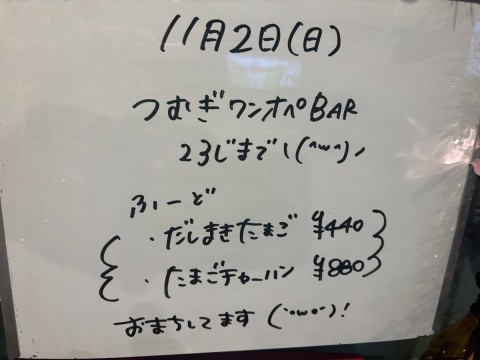 11月2日(日)
つむぎワンオペBAR
23じまで\(^w^)ノ
ふーど
・だしまきたまご ¥440
・たまごチャーハン ¥880
おまちしてます (`・w・´)!